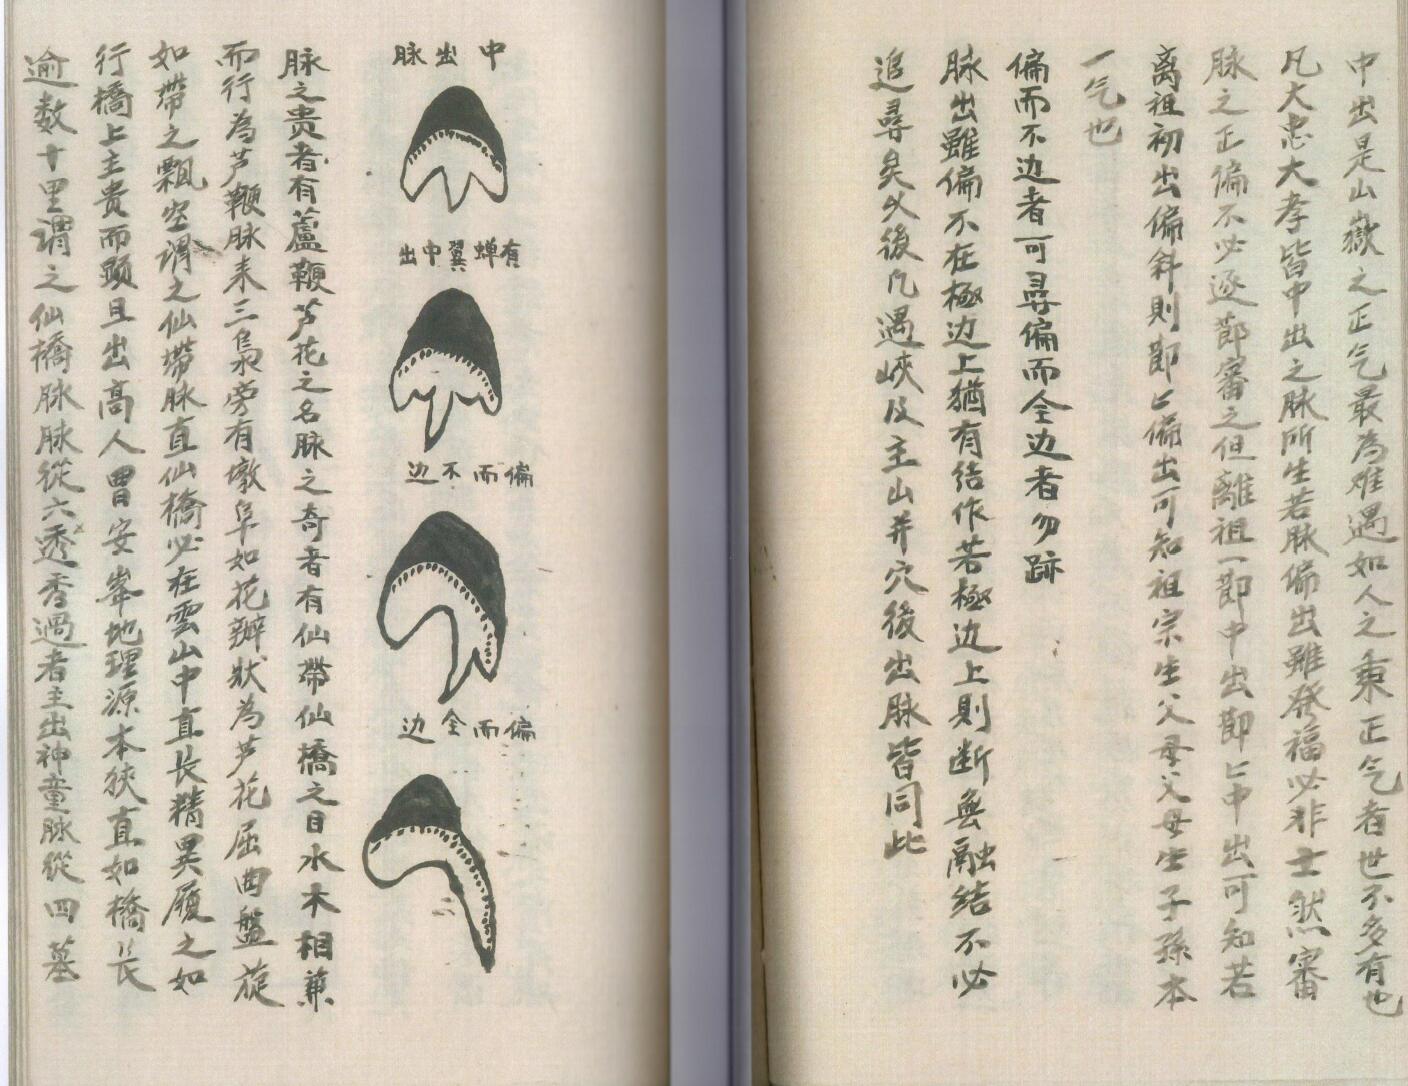 中出是山嶽之正气最為难遇如人之秉正气者世不多有也
凡大忠大孝皆中出之脉所生若脉偏出雖發福必非士然審
脉之正偏不必逐節審之但離祖一節中出節〻中出可知若
离祖初出偏斜則節〻偏出可知祖宗生父母父母生子孫本
一气也
偏而不边者可尋偏而全边者勿跡
脉出雖偏不在極边上猶有结作若極边上則断無融结不必
追尋矣父後凡遇峽及主山并穴後出脉皆同此
中出脉
有蝉翼中出
偏而不边
偏而全边
脉之贵者有蘆鞭芦花之名脉之奇者有仙帶仙橋之目水木相兼
而行為芦鞭脉来三曲旁有墩阜如花瓣狀為芦花屈曲盤旋
如帶之飄空謂之仙帶脉直仙橋必在雲山中直长精異履之如
行橋上主贵而顕且出高人胃安峯地理源本狹直如橋长
逾数十里謂之仙橋脉脉從六透秀過者主出神童脉從四墓